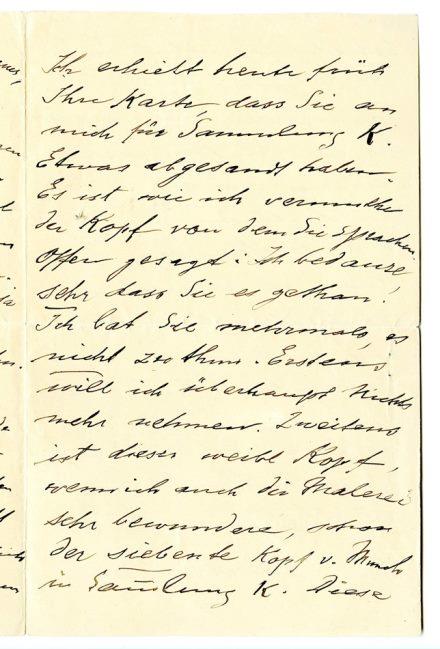 Ich erhielt heute früh
Ihre Karte, dass Sie an
mich für Sammlung K.
Etwas abgesandt haben.
Es ist wie ich vermuthe
der Kopf von dem Sie sprachen.
Offen gesagt: Ich bedaure,
sehr dass Sie es gethan!
Ich bat Sie mehrmals, es
nicht zu thun. Erstens
will ich überhaupt Nichts
mehr nehmen. Zweitens
ist dieser weibl Kopf,
wenn ich auch die Malerei
sehr bewundere, schon
der siebente Kopf v. Munch
in Sam̅lung K. Diese